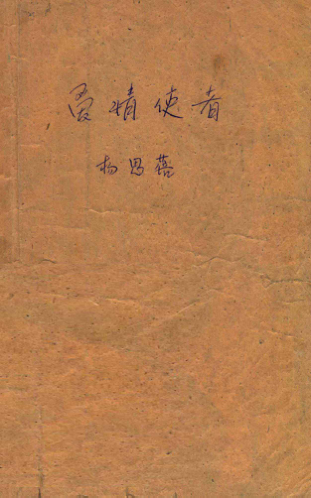 爱情使者
杨思蓓